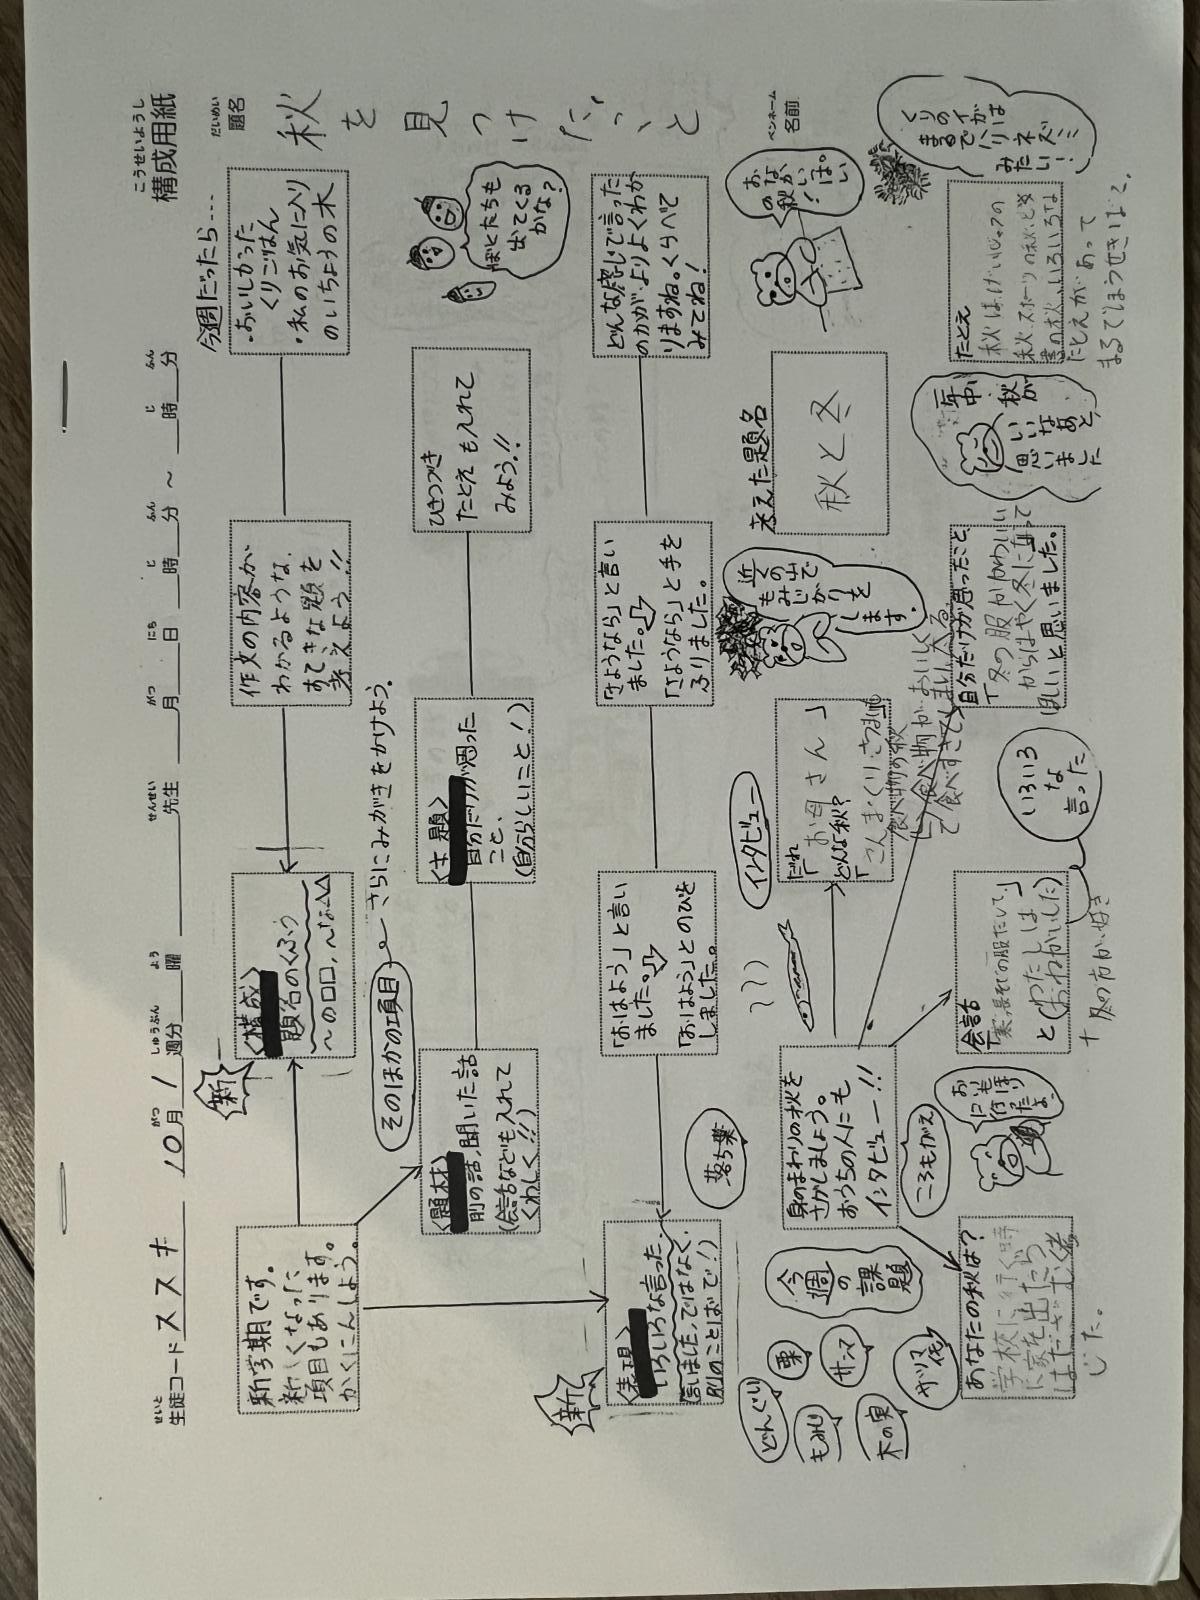 こうせいようし
構成用紙
せいと
生徒コード ススキ
がつ しゅうぶん よう
10月 1 週分 曜
せんせい
先生
がつ にち じ ふん じ ふん
月 日 時 分 ～ 時 分
だいめい
題名
秋を見つけたこと
ペンネーム
名前
新学期です。
新しくなった
項目もあります。
かくにんしよう。
新
<構成>
題名のくふう
～の口口、～な△△
作文の内容が
わかるような、
すてきな題を
考えよう!!
今週だったら・・・・
・おいしかった
くりごはん
・私のお気に入り
のいちょうの木
そのほかの項目
さらにみがきをかけよう。
<題材>
前の話、聞いた話
(会話なども入れて
くわしく!!!)
<主題>
自分だけが思った
こと、
(自分らしいこと!)
ひきつづき
たとえも入れて
みよう!!
ぼくたちも
出てくる
かな?
新
<表現>
いろいろな言った
言いました、ではなく、
別のことばで!)
「おはよう」と言い
ました。
「おはよう」とのびを
しました。
「さようなら」と言い
ました。
「さようなら」と手を
ふりました。
どんな感じで言った
のかが、よりよくわか
りますね。くらべて
みてね!
落ち葉
今週
の
課題
どんぐり
栗
もみじ
サンマ
木の実
サツマ
イモ
身のまわりの秋を
さがしましょう。
おうちの人にも
インタビュー!!
インタビュー
だれ
「お母さん」
どんな秋?
「さんま・くり・さつまいも
食べ物の秋
近くの山で
もみじがりを
します。
考えた題名
秋と冬
おなか
の秋!
いっぱい。
くりのイガは
まるでハリネズミ
みたい!
ころもがえ
おにいも
何ほり
だよ。
あなたの秋は?
学校に行く時
に家を出たら
はだざむく感
じた。
会話
「寒い長そでの服だして。」
とわたしは
(おねがいした)
+冬の方が好き
いろいろ
な
言った
自分だけが思ったこと
「冬の服がかわいい
からはやく冬になって
ほしいと思いました。
一年中、秋が
いいなあと
思いました
たとえ
秋はげいじゅつの
秋、スポーツの秋、どく
書の秋、いろいろな
たとえがあって
まるでほうせきばこ。